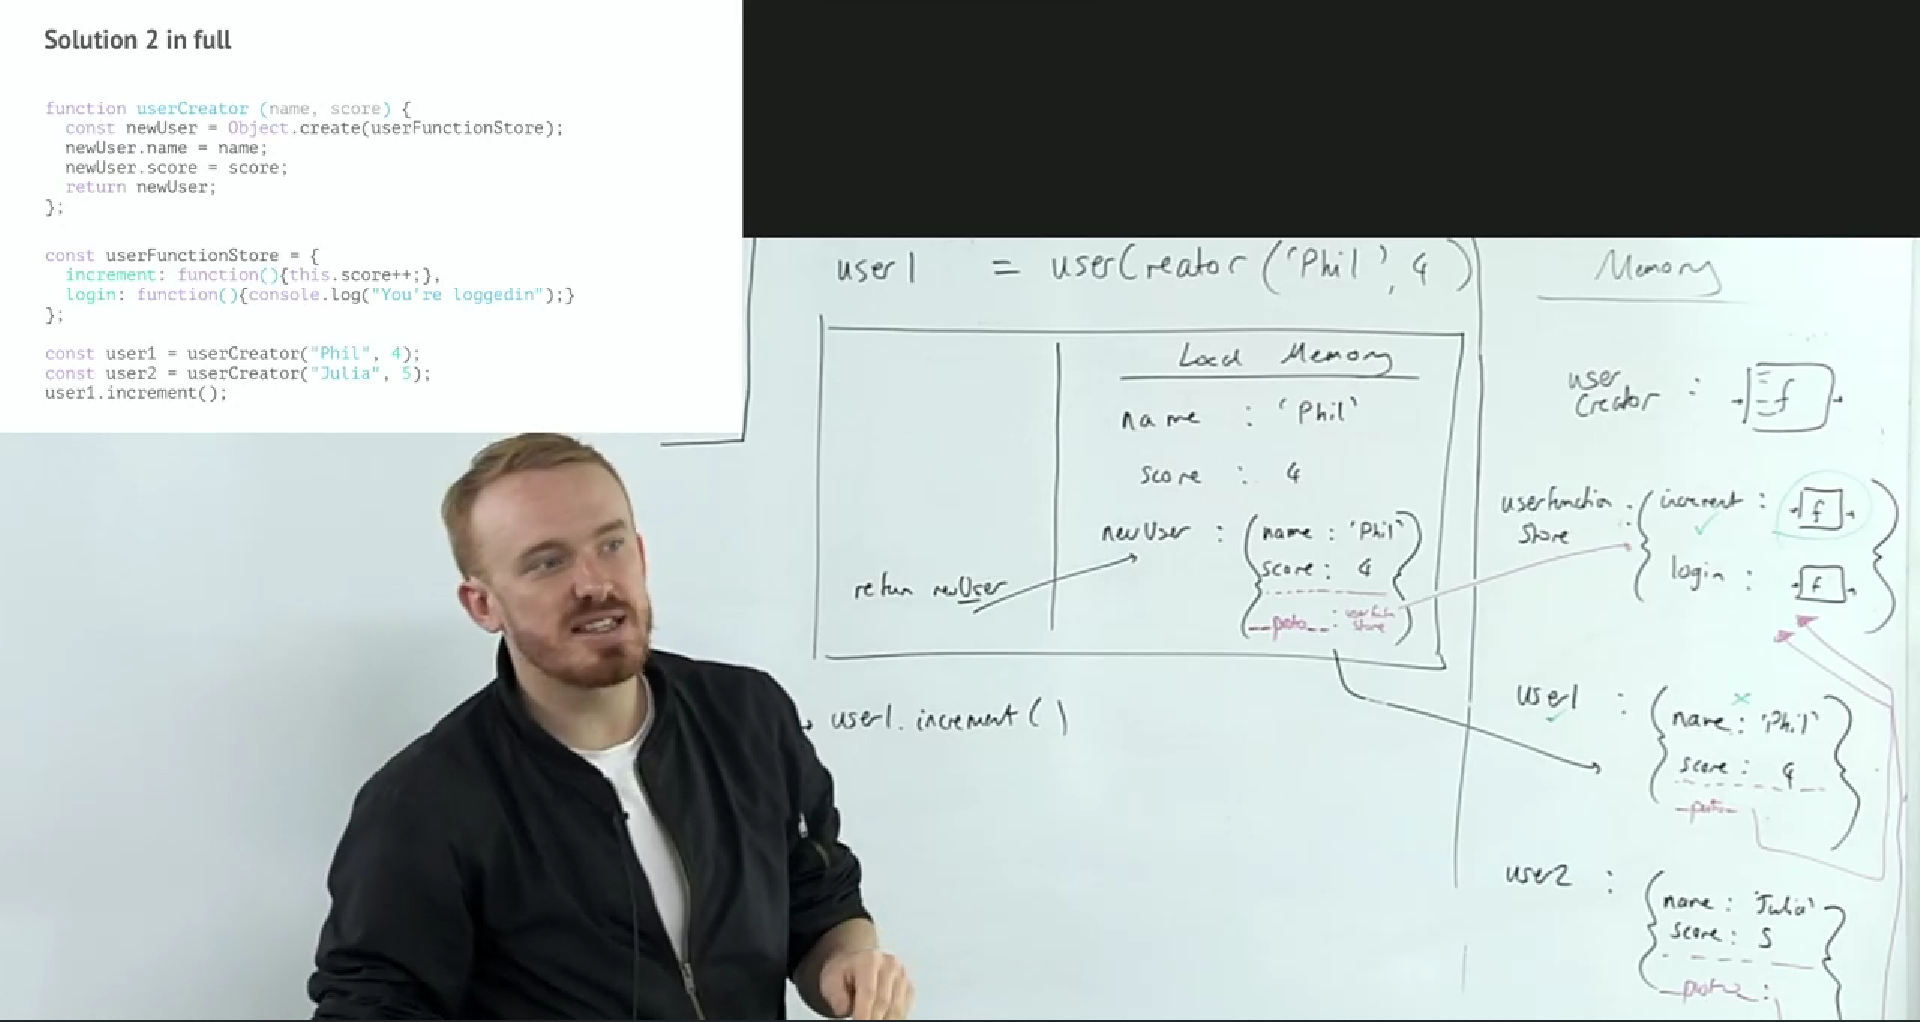 Solution 2 in full
function userCreator (name, score) {
const newUser = Object.create(userFunctionStore);
newUser.name = name;
newUser.score = score;
return newUser;
};
const userFunctionStore = {
increment: function(){this.score++;},
login: function(){console.log("You're loggedin");}
};
const user1 = userCreator("Phil", 4);
const user2 = userCreator("Julia", 5);
user1.increment();
user1 = userCreator('Phil', 4)
Local Memory
name : 'Phil'
score : 4
newUser : { name : 'Phil'
score : 4
__proto__ :
store }
return newUser
user1.increment()
Memory
user
Creator : f
userFunction
Store : { increment : f
login : f }
user1 : { name : 'Phil'
score : 4
__proto__ }
user2 : { name : 'Julia'
score : 5
__proto__ : }